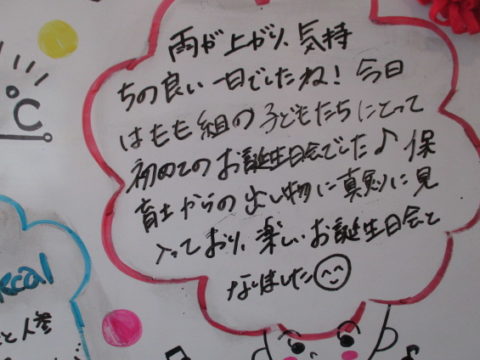 雨が上がり、気持
ちの良い一日でしたね！今日
はもも組の子どもたちにとって
初めてのお誕生日会でした♪保
育士からの出し物に真剣に見
入っており、楽しいお誕生日会と
なりました
℃
kcal
と人参